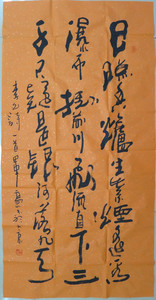 日照香爐生紫煙遥看
瀑布挂前川飛流直下三
千尺疑是銀河落九天
李白詩一首